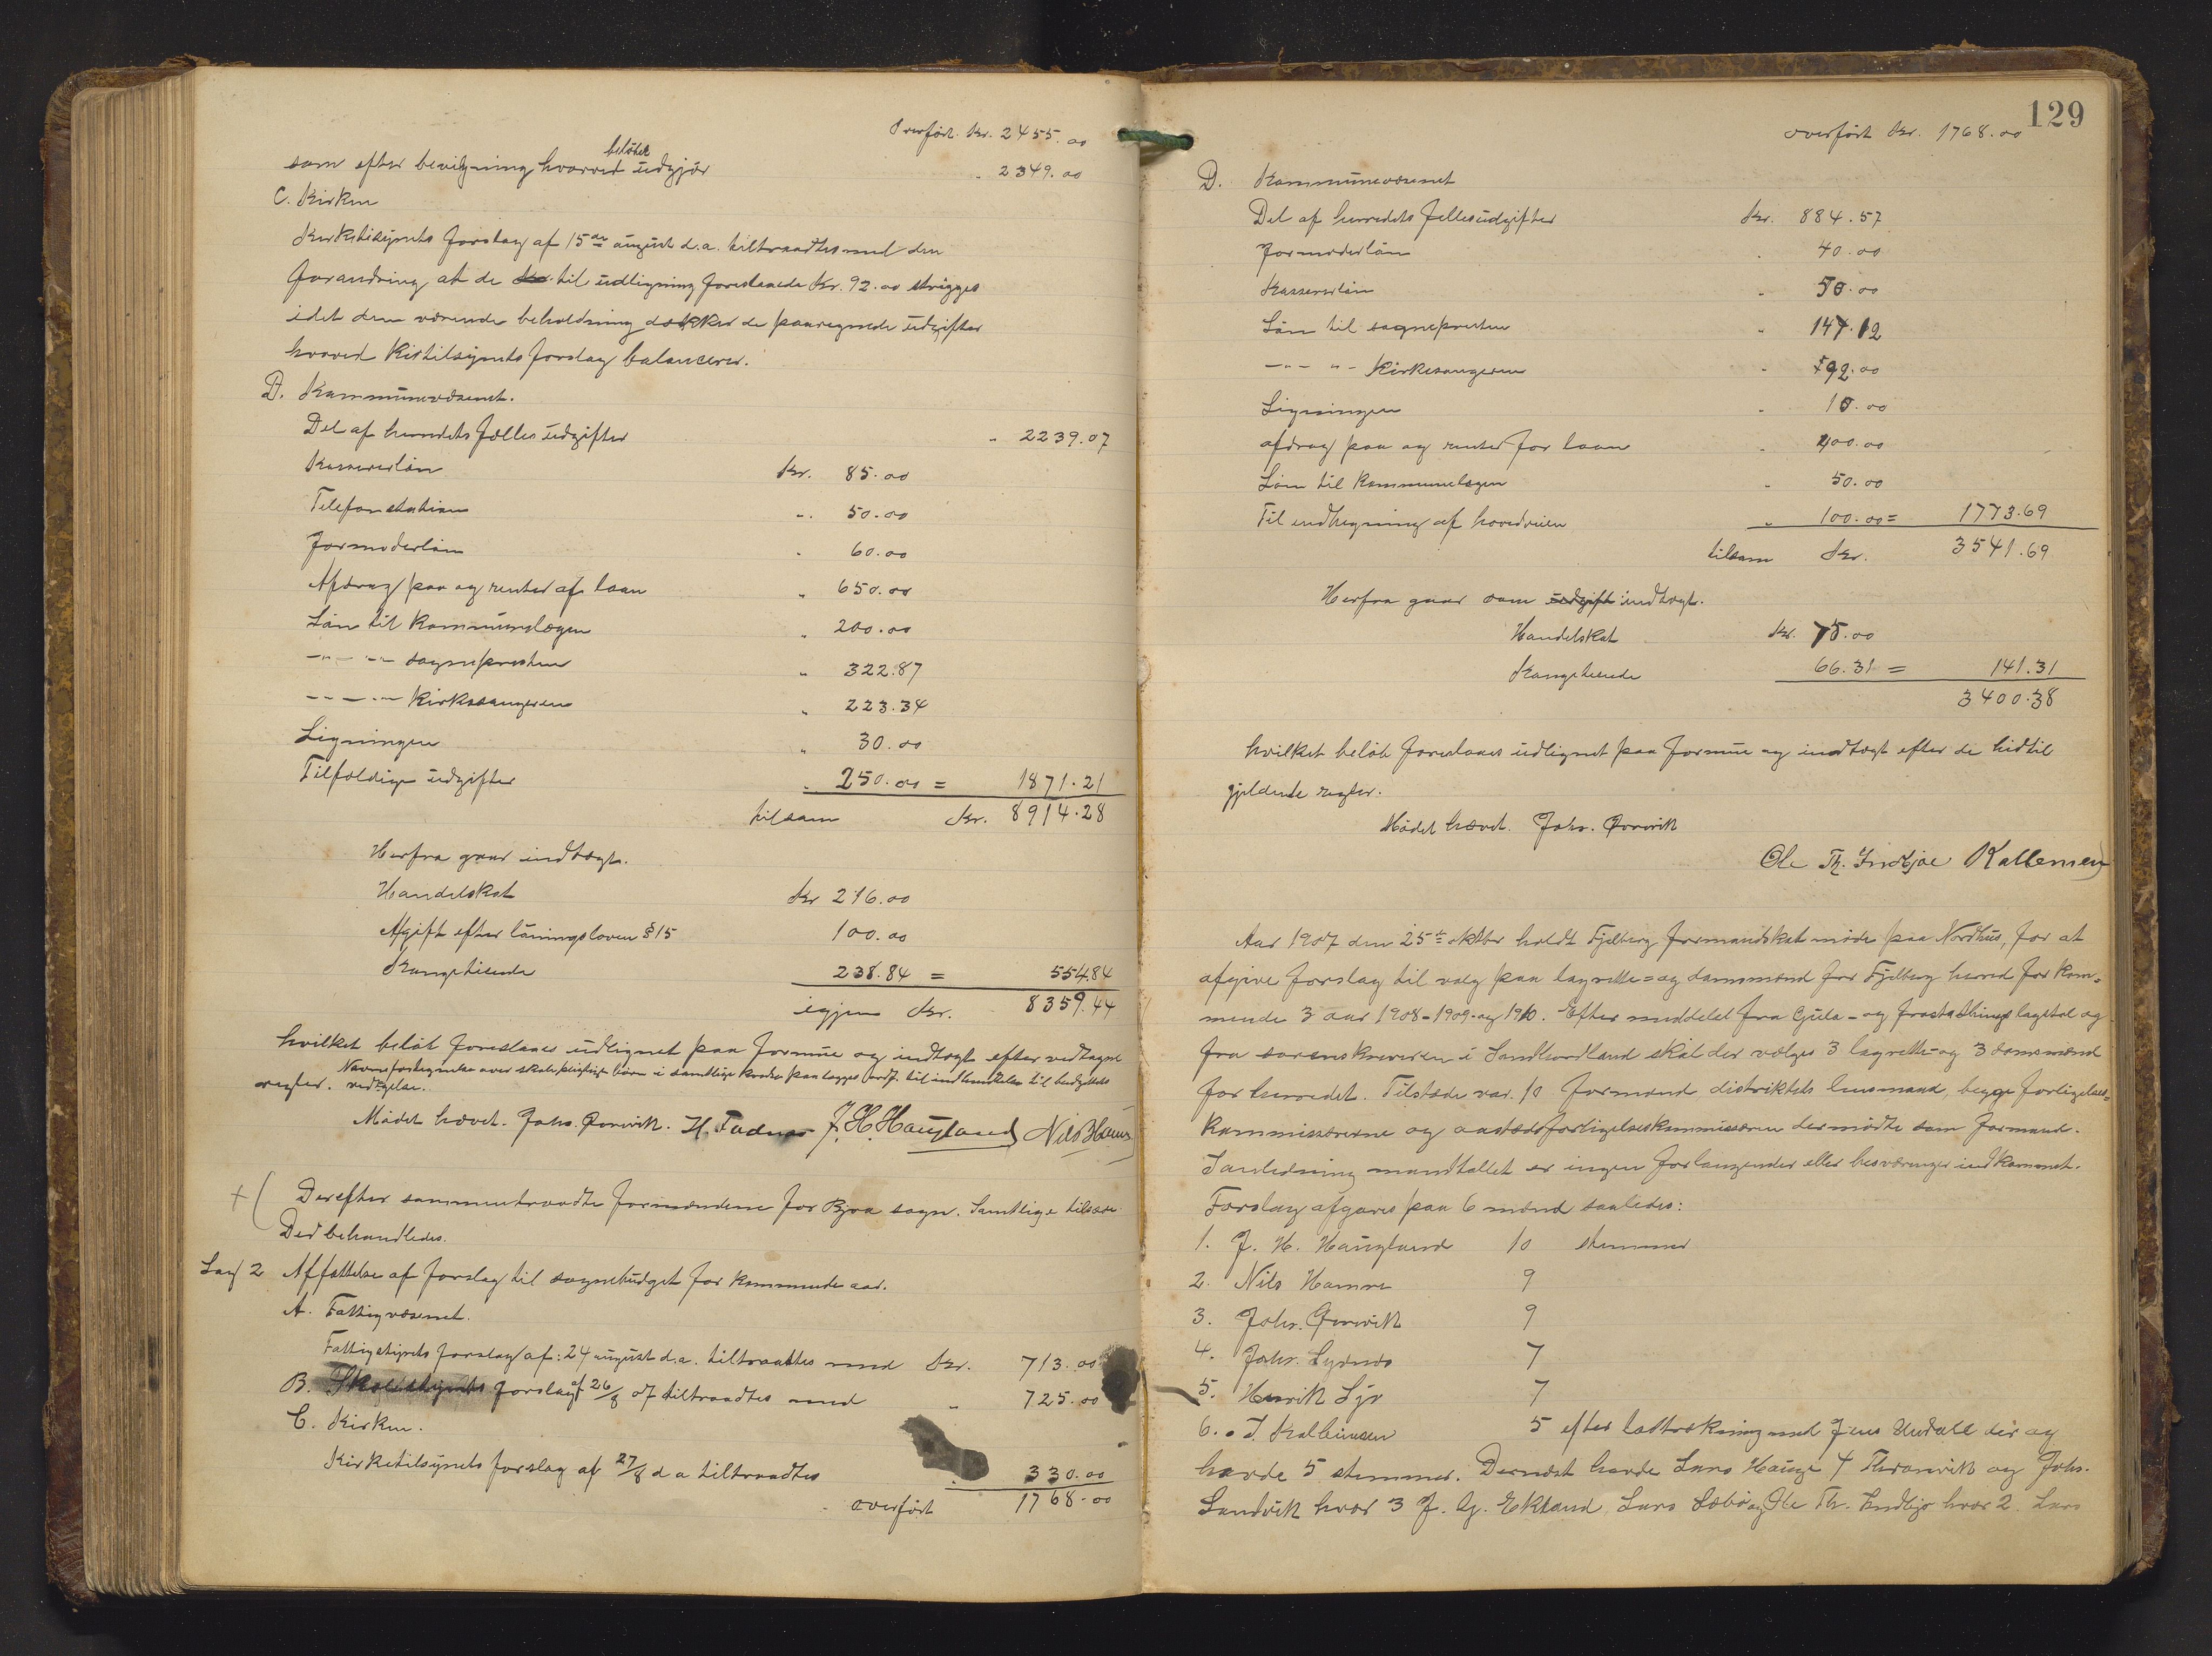 Overført. Kr. 2455.00
som efter bevilgning hvorved beløbet udgjør „ 2349.00
C. Kirken
Kirketilsynets forslag af 15de august d.a. tiltraadtes med den
forandring at de til udligning foreslaaede Kr. 92.00 strygges
idet den værende beholdning dækker de paaregnede udgifter
hvorved Kirtilsynets forslag balancerer.
D. Kommunevæsenet.
Del af herredets fælles udgifter „ 2239.07
Kassererløn Kr. 85.00
Telefonstation „ 50.00
Formøderløn „ 60.00
Afdrag paa og renter af laan „ 650.00
Løn til Kommunelægen „ 200.00
-„- -„- sognepresten „ 322.87
-„- -„- Kirkesangeren „ 223.34
Ligningen „ 30.00
Tilfældige udgifter „ 250.00 = 1871.21
tilsam Kr. 8914.28
Herfra gaar indtægt.
Handelskat Kr 216.00
Afgift efter lønningsloven § 15 100.00
Kongetiende 238.84 = 554.84
igjen Kr. 8359.44
hvilket beløb foreslaaes udlignet paa formue og indtægt efter vedtagne
Navnefortegnelse over skolepligtige børn i samtlige kredse paalægges ordf. til indhentelse til budgettets
regler. vedtagelse.
Mødet hævet. Johs. Ørrevik. H. Tadnes J. H. Haugland Nils Hamre
+ ( Derefter sammentraadte formændene for Bjoa sogn. Samtlige tilstede
Der behandledes.
Sag 2 Affattelse af forslag til sognebudget for kommende aar.
A. Fattigvæsenet.
Fattigstyrets forslag af: 24 august d.a. tiltraadtes med Kr. 713.00
B. Skolestyrets forslag af 26/8 07 tiltraadtes med „ 725.00
C. Kirken.
Kirketilsynets forslag af 27/8 d a tiltraadtes 330.00
overført 1768.00
129
overført Kr. 1768.00
D. Kommunevæsenet
Del af herredets fællesudgifter Kr. 884.57
Formøderløn „ 40.00
Kassererløn „ 50.00
Løn til sognepresten „ 147.12
-„- „- Kirkesangeren „ 92.00
Ligningen „ 10.00
afdrag paa og renter for laan „ 400.00
Løn til Kommunelægen „ 50.00
Til indhegning af hovedveien „ 100.00 = 1773.69
tilsam Kr. 3541.69
Herfra gaar som udgift indtægt.
Handelskat Kr. 75.00
Kongetiende 66.31 = 141.31
3400.38
hvilket beløb foreslaaes udlignet paa formue og indtægt efter de hidtil
gjeldende regler.
Mødet hævet. Johs. Ørrevik
Ole Th. Indbjoe Kallemsen
Aar 1907 den 25de oktbr holdt Fjelberg formandskab møde paa Nordhus, for at
afgive forslag til valg paa lagrette= og domsmænd for Fjelberg herred for kom=
mende 3 aar 1908-1909-og 1910. Efter meddelel fra Gula- og frostathings lagstol og
fra sorenskriveren i Søndhordland skal der vælges 3 lagrette-og 3 domsmænd
for herredet. Tilstede var. 10 formænd distriktets lensmand, begge forligelses=
kommissærerne og aastedsforligelseskommissæren dermødte som formænd.
I anledning mandtallet er ingen forlangender eller besværinger indkommet.
Forslag afgaves paa 6 mænd saaledes:
1. J. H. Haugland 10 stemmer
2. Nils Hamre 9
3. Johs. Ørrevik 9
4. Johs. Lysnes 7
5. Henrik Lyr 7
6. J. Kallemsen 5 efter lodtrækning med Jens Undall der og
havde 5 stemmer. Dernæst havde Lars Hauge 4 Thronvik og Johs.
Sandvik hver 3 J. Aj. Ekland, Lars Sæbø og Ole Th. Indbjo hver 2. Lars